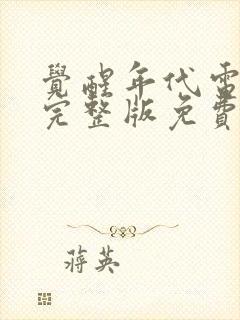 覺醒年代電
完整版免費
蔣英